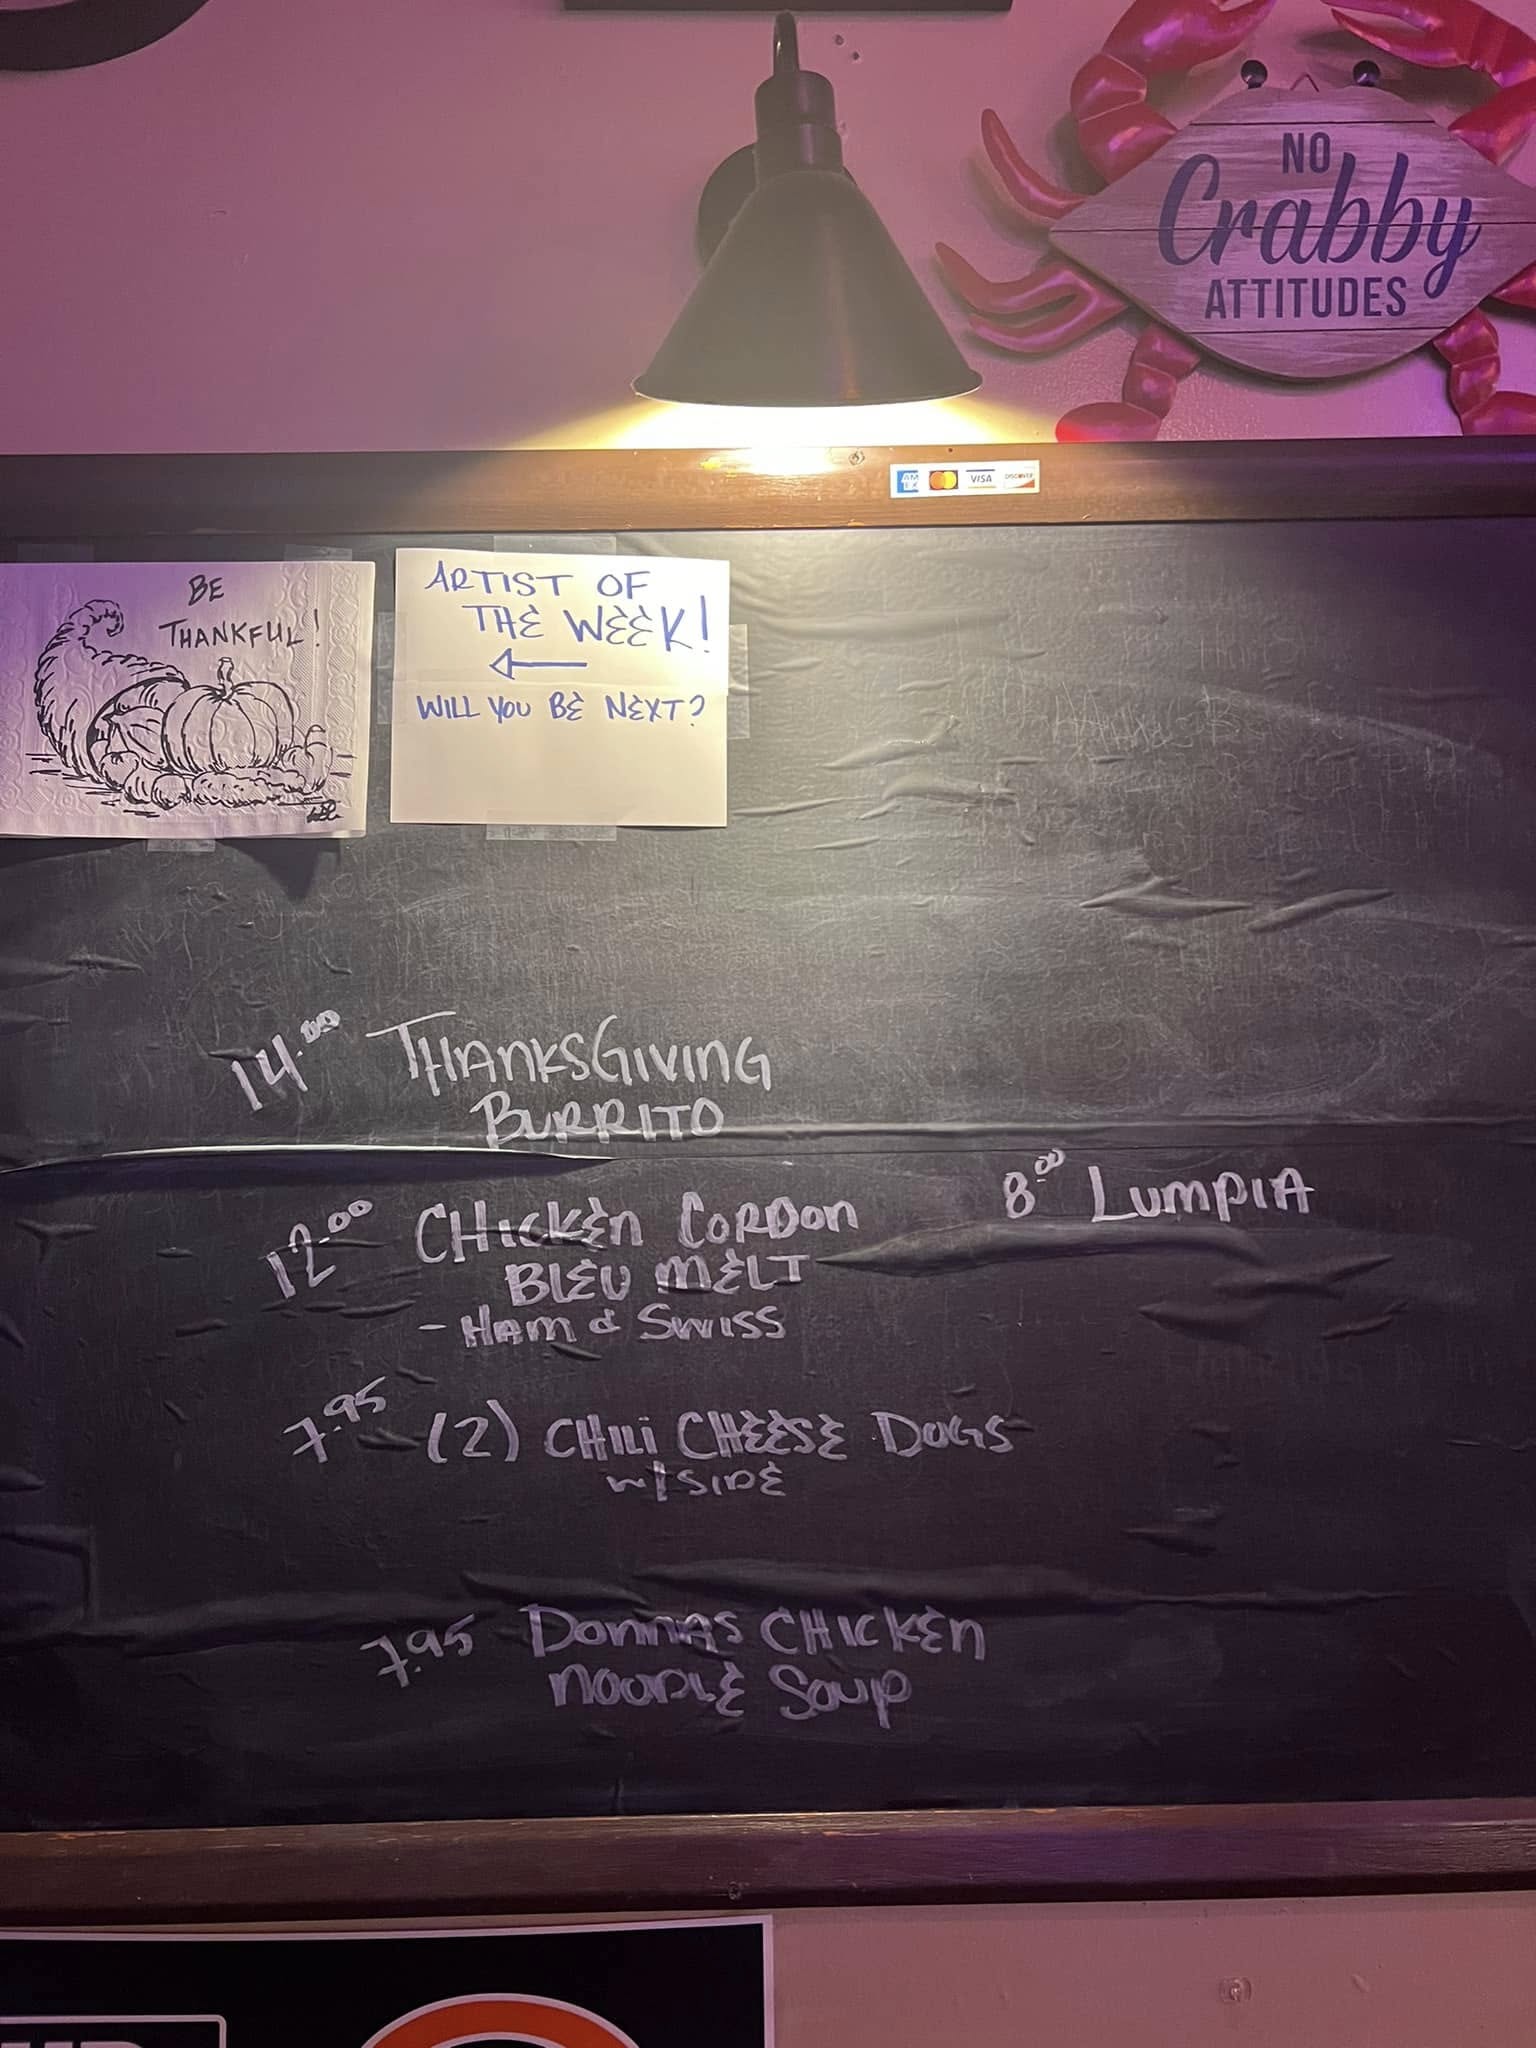 NO
Crabby
ATTITUDES
AM EX VISA DISCOVER
BE
THANKFUL!
ARTIST OF
THE WEEK!
WILL YOU BE NEXT?
14.00 THANKSGIVING
BURRITO
8.00 LUMPIA
12.00 CHICKEN CORDON
BLEU MELT
- HAM & SWISS
7.95 (2) CHILI CHEESE DOGS
W/SIDE
7.95 DONNAS CHICKEN
NOODLE SOUP